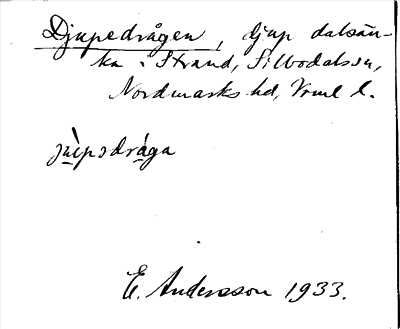 Djupedrågen, djup dalsän-
ka i Strand, Silbodals sn,
Nordmarks hd, Vrml l.
jùpədrága
E. Andersson 1933.